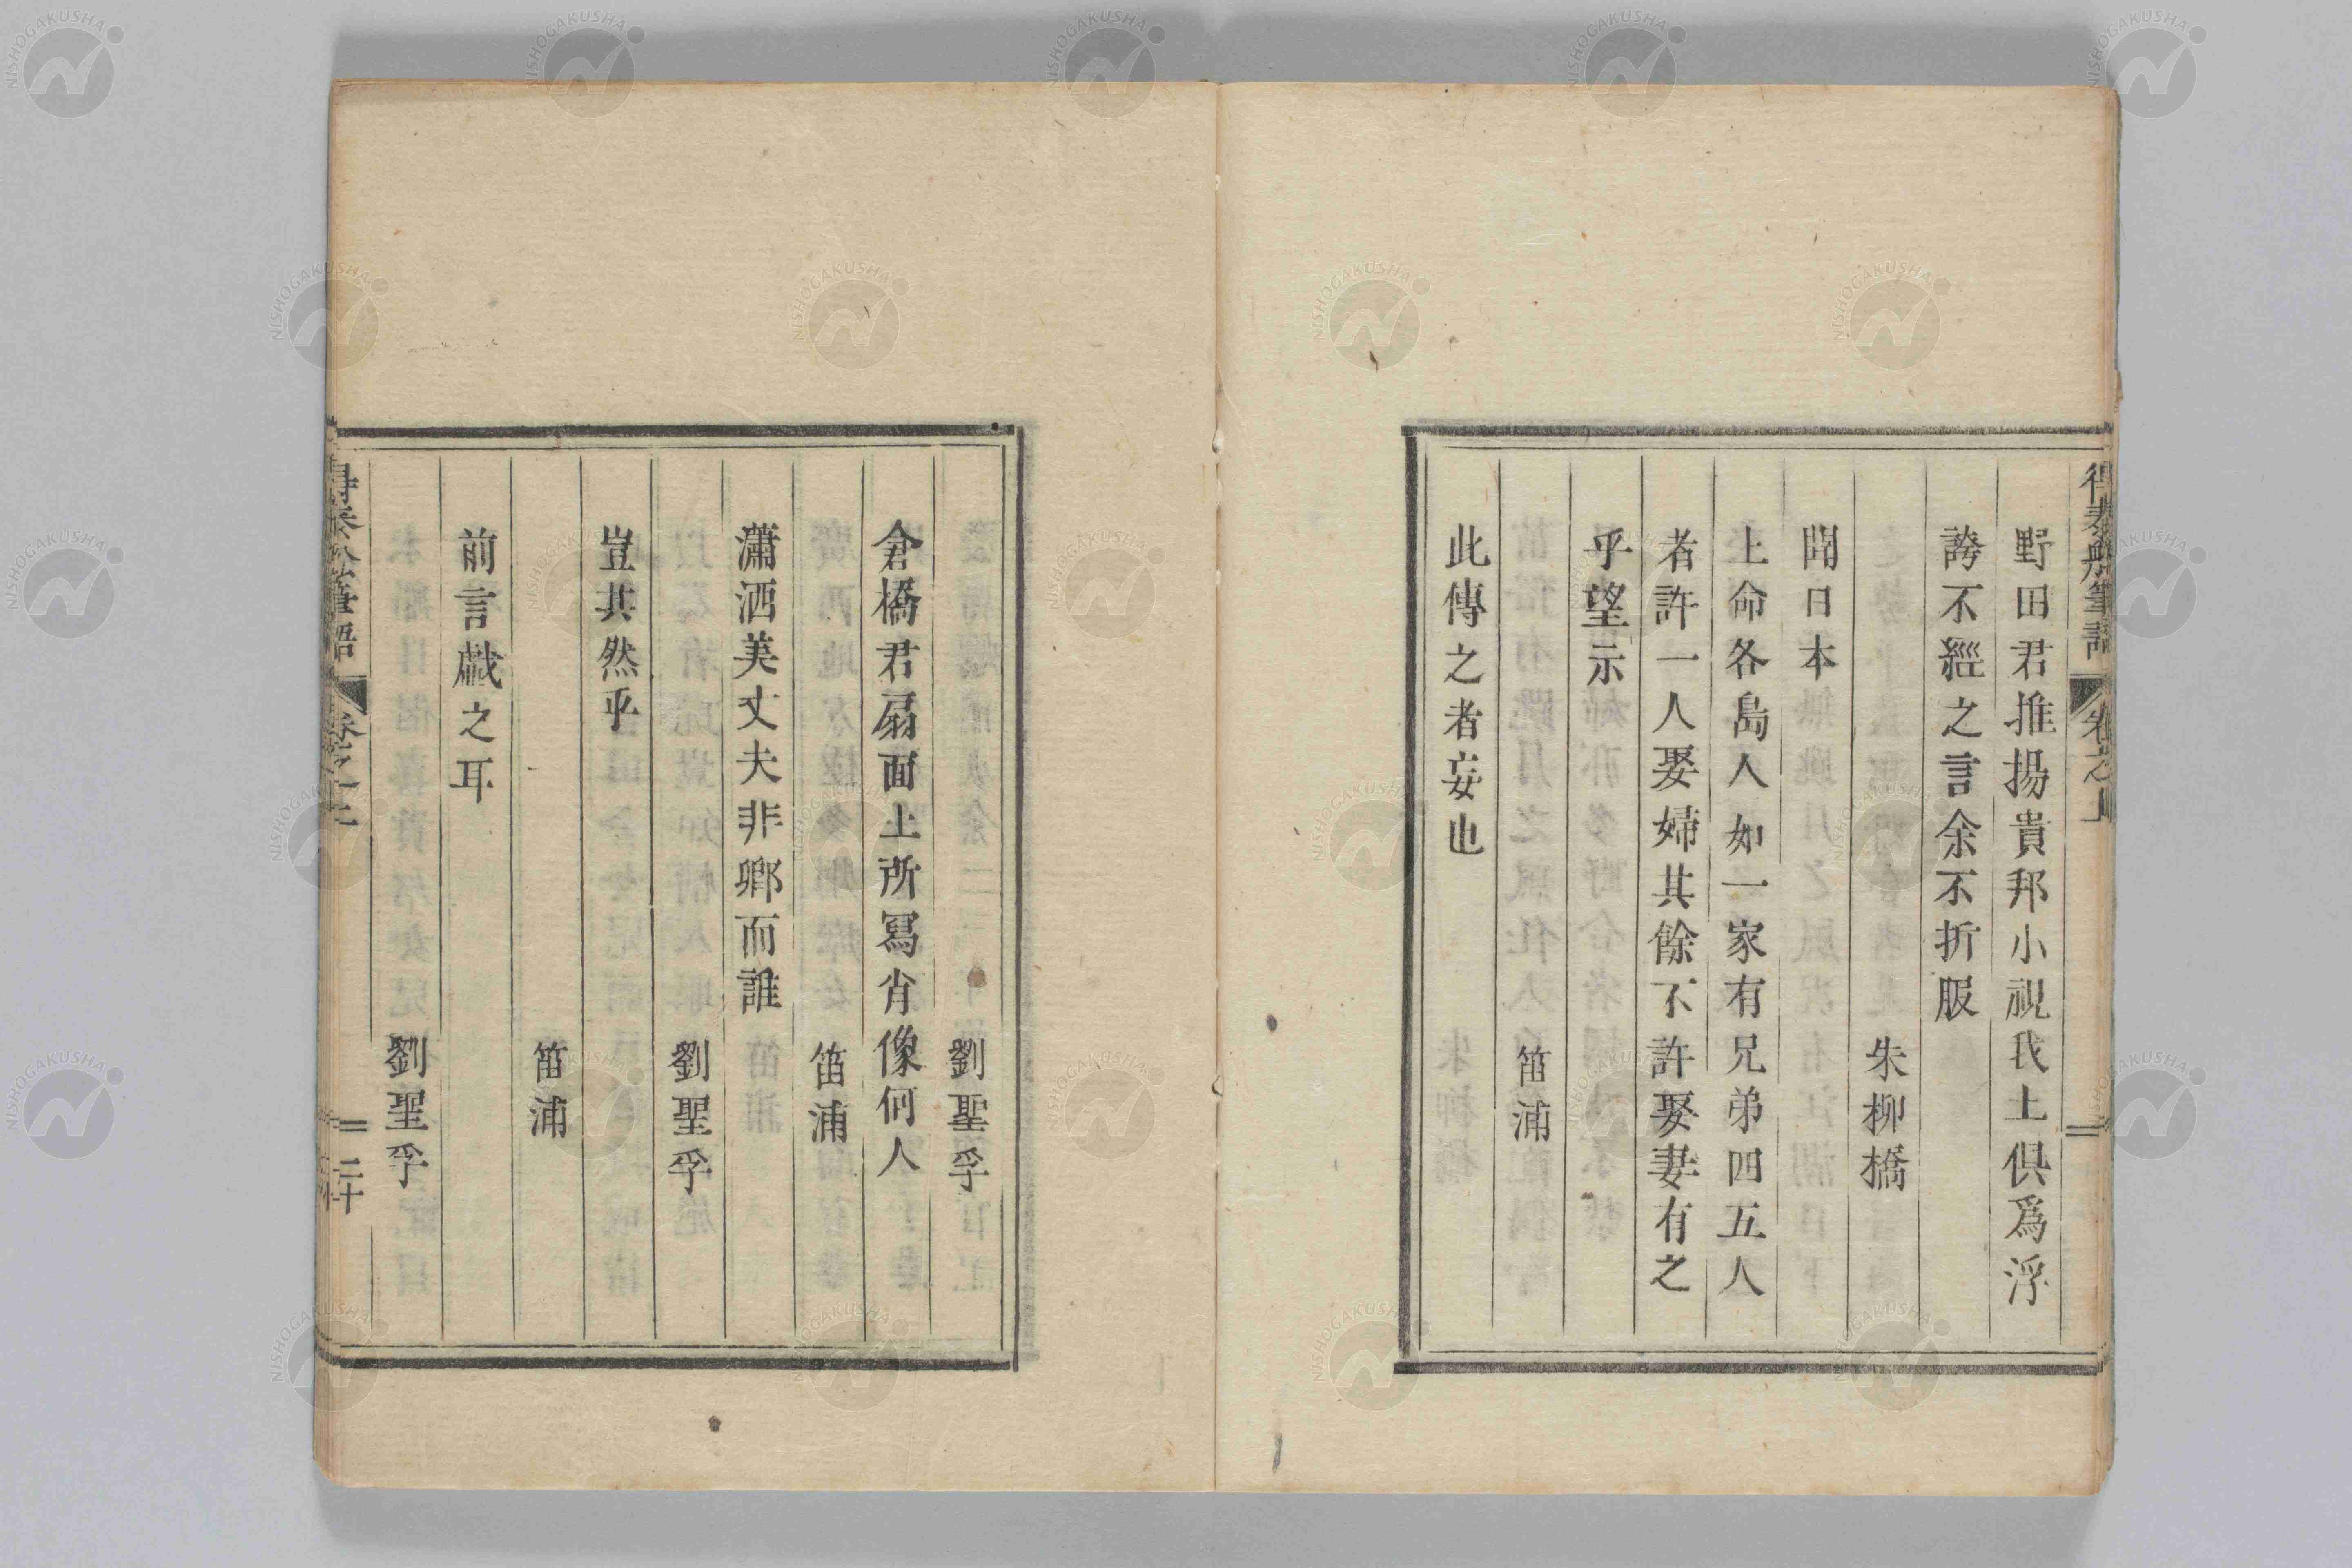 野田君推揚貴邦小視我土俱爲浮
誇不經之言余不折服
朱柳橋
聞日本
上命各島人如一家有兄弟四五人
者許一人娶婦其餘不許娶妻有之
乎望示
笛浦
此傳之者妄也
劉聖孚
倉橋君扇面上所寫肖像何人
笛浦
瀟洒美丈夫非鄉而誰
劉聖孚
豈其然乎
笛浦
前言戱之耳
劉聖孚
二十
NISHOGAKUSHA